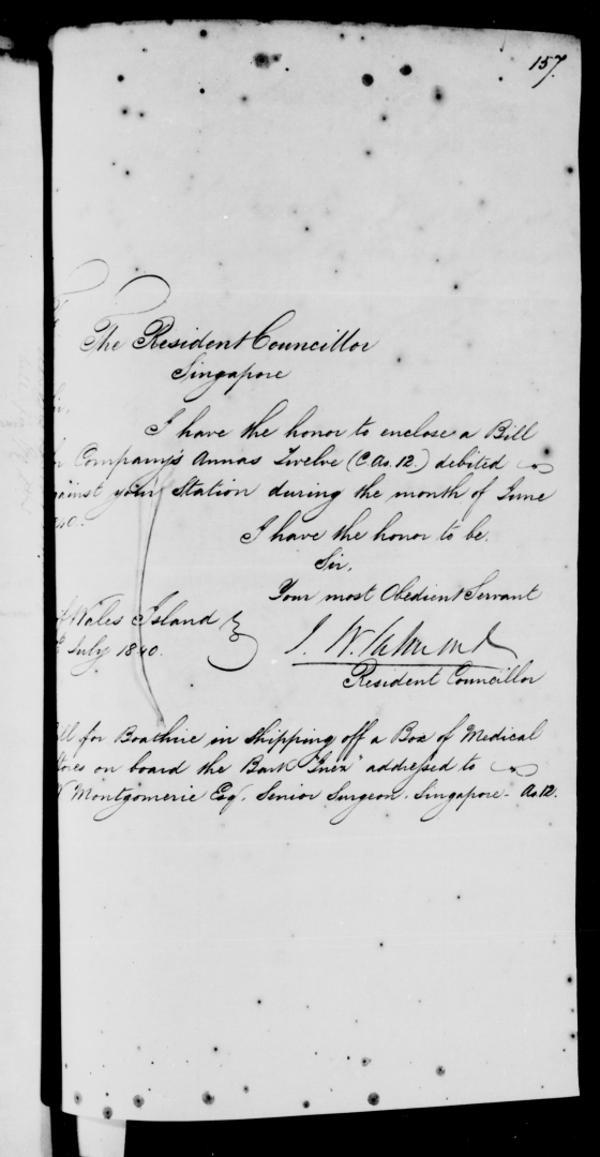 157.
The Resident Councillor
Singapore
I have the honor to enclose a Bill
Company's Annas Twelve (C. As. 12.) debited
against your Station during the month of June
I have the honor to be.
Sir,
Your most Obedient Servant
Wales Island
July 1840.
Resident Councillor
Bill for Boathire in shipping off a Box of Medical
Stores on board the Bark "Inez" addressed to
Montgomerie Esqr. Senior Surgeon. Singapore - As. 12.